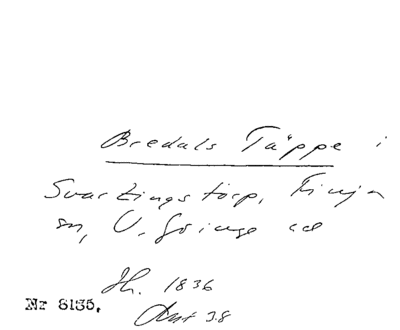 Bredals Täppe i
Svartingstorp, Finja
sn, V. Göinge hd
Jh. 1836
Nr 8135.
Akt 38